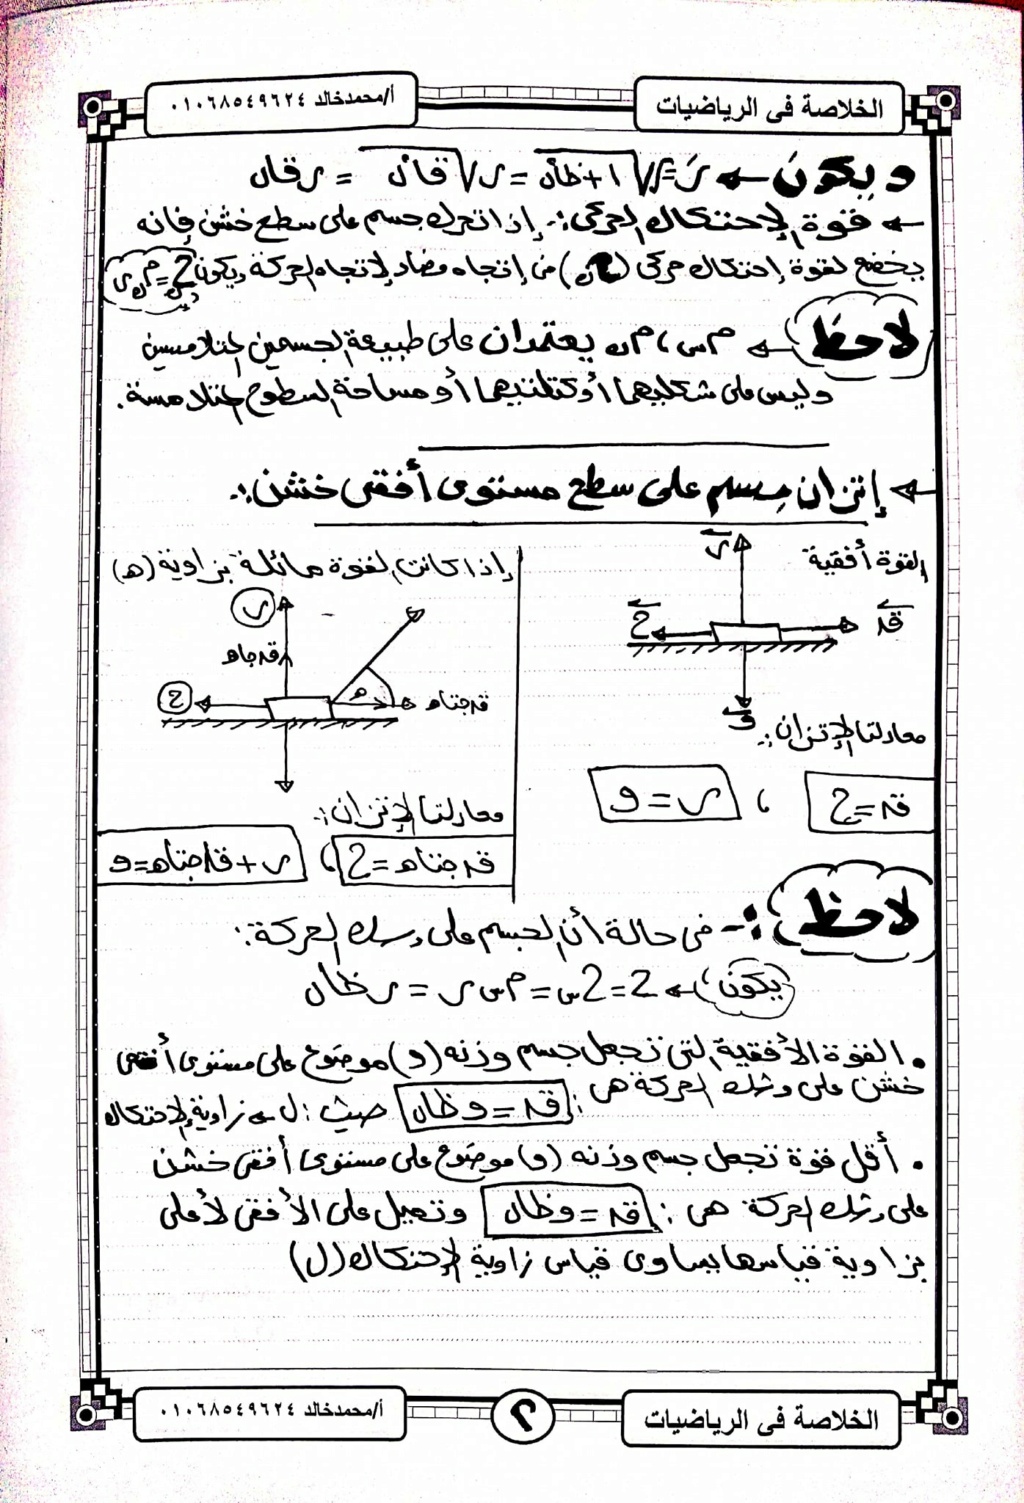 الخلاصة فى الرياضيات
أ/محمدخالد ٠١٠٦٨٥٤٩٦٢٤
ويكون ← رَ = ر√١+ظا٢ل = ر√قا٢ل = رقال
← قوة الإحتكاك الحركى:- إذا تحرك جسم على سطح خشن فإنه
يخضع لقوة إحتكاك حركى (حك) فى إتجاه مضاد لإتجاه الحركة ويكون حك=مك ر
لاحظ ← مس ، مك يعتمدان على طبيعة الجسمين المتلامسين
وليس على شكليهما أو كتلتيهما أو مساحة السطوح المتلامسة.
← إتزان جسم على سطح مستوى أفقى خشن:-
القوة أفقية
ر
ح
قہ
و
معادلتا الإتزان:-
قہ=ح ، ر=و
إذا كانت القوة مائلة بزاوية (هـ)
ر
قہ جاهـ
ح
هـ
قہ جتاهـ
معادلتا الإتزان:-
قہ جتاهـ=ح ، ر+قہ جتاهـ=و
لاحظ :- فى حالة أن الجسم على وشك الحركة:
يكون ← ح=حس=مس ر = رظال
• القوة الأفقية التى تجعل جسم وزنه (و) موضوع على مستوى أفقى
خشن على وشك الحركة هى: قہ=وظال حيث: ل← زاوية الإحتكاك
• أقل قوة تجعل جسم وزنه (و) موضوع على مستوى أفقى خشن
على وشك الحركة هى: قہ=وظال وتميل على الأفقى لأعلى
بزاوية قياسها يساوى قياس زاوية الإحتكاك (ل)
الخلاصة فى الرياضيات
٢
أ/محمدخالد ٠١٠٦٨٥٤٩٦٢٤